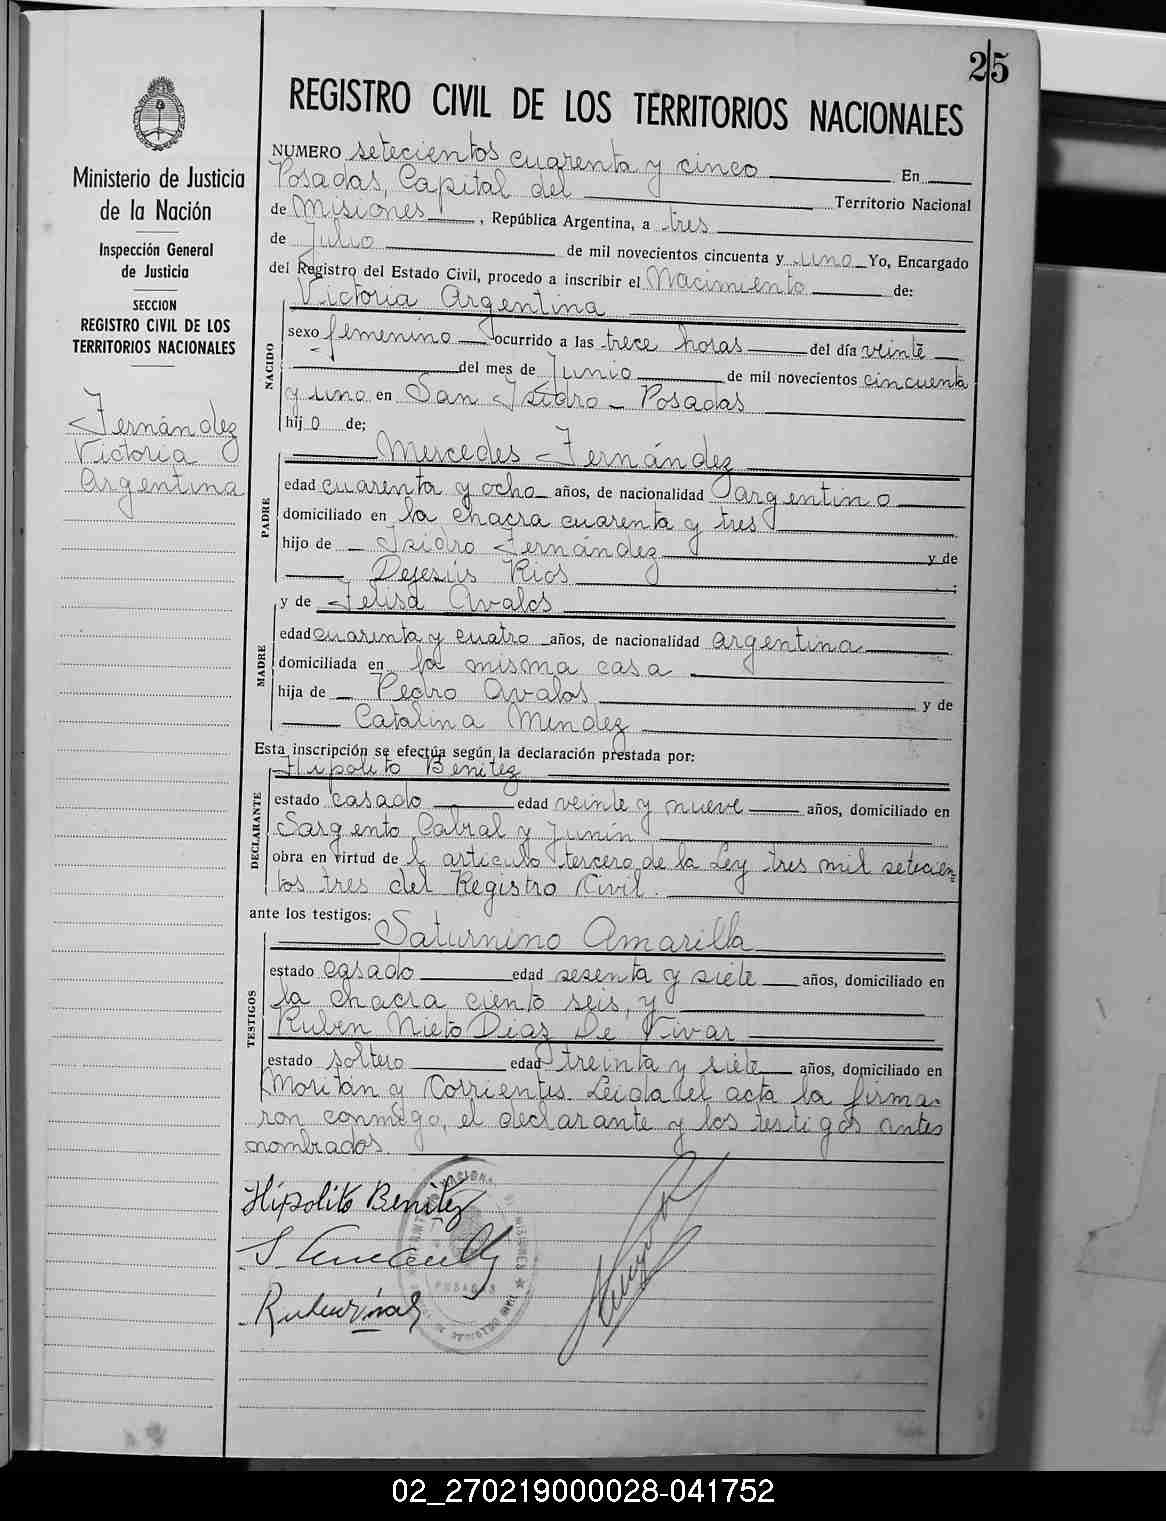 25
REGISTRO CIVIL DE LOS TERRITORIOS NACIONALES
Ministerio de Justicia
de la Nación
Inspección General
de Justicia
SECCION
REGISTRO CIVIL DE LOS
TERRITORIOS NACIONALES
Fernández
Victoria
Argentina
NUMERO setecientos cuarenta y cinco En
Posadas, Capital del Territorio Nacional
de Misiones, República Argentina, a tres
de Julio de mil novecientos cincuenta y uno Yo, Encargado
del Registro del Estado Civil, procedo a inscribir el Nacimiento de:
Victoria Argentina
NACIDO
sexo femenino ocurrido a las trece horas del día veinte
del mes de Junio de mil novecientos cincuenta
y uno en San Isidro - Posadas
hijo de;
Mercedes Fernández
PADRE
edad cuarenta y ocho años, de nacionalidad argentino
domiciliado en la chacra cuarenta y tres
hijo de Isidro Fernández y de
Dejesús Rios ;
y de Felisa Avalos
MADRE
edad cuarenta y cuatro años, de nacionalidad argentina
domiciliada en la misma casa
hija de Pedro Avalos y de
Catalina Mendez
Esta inscripción se efectúa según la declaración prestada por:
Hipolito Benitez
DECLARANTE
estado casado edad veinte y nueve años, domiciliado en
Sargento Cabral y Junín
obra en virtud del artículo tercero de la Ley tres mil setecien
tos tres del Registro Civil.
ante los testigos:
Saturnino Amarilla
TESTIGOS
estado casado edad sesenta y siete años, domiciliado en
la chacra ciento seis, y
Ruben Nieto Diaz De Vivar
estado soltero edad treinta y siete años, domiciliado en
Moritán y Corrientes. Leida el acta la firma-
ron conmigo, el declarante y los testigos antes
nombrados.
Hipolito Benitez
POSADAS
02_270219000028-041752